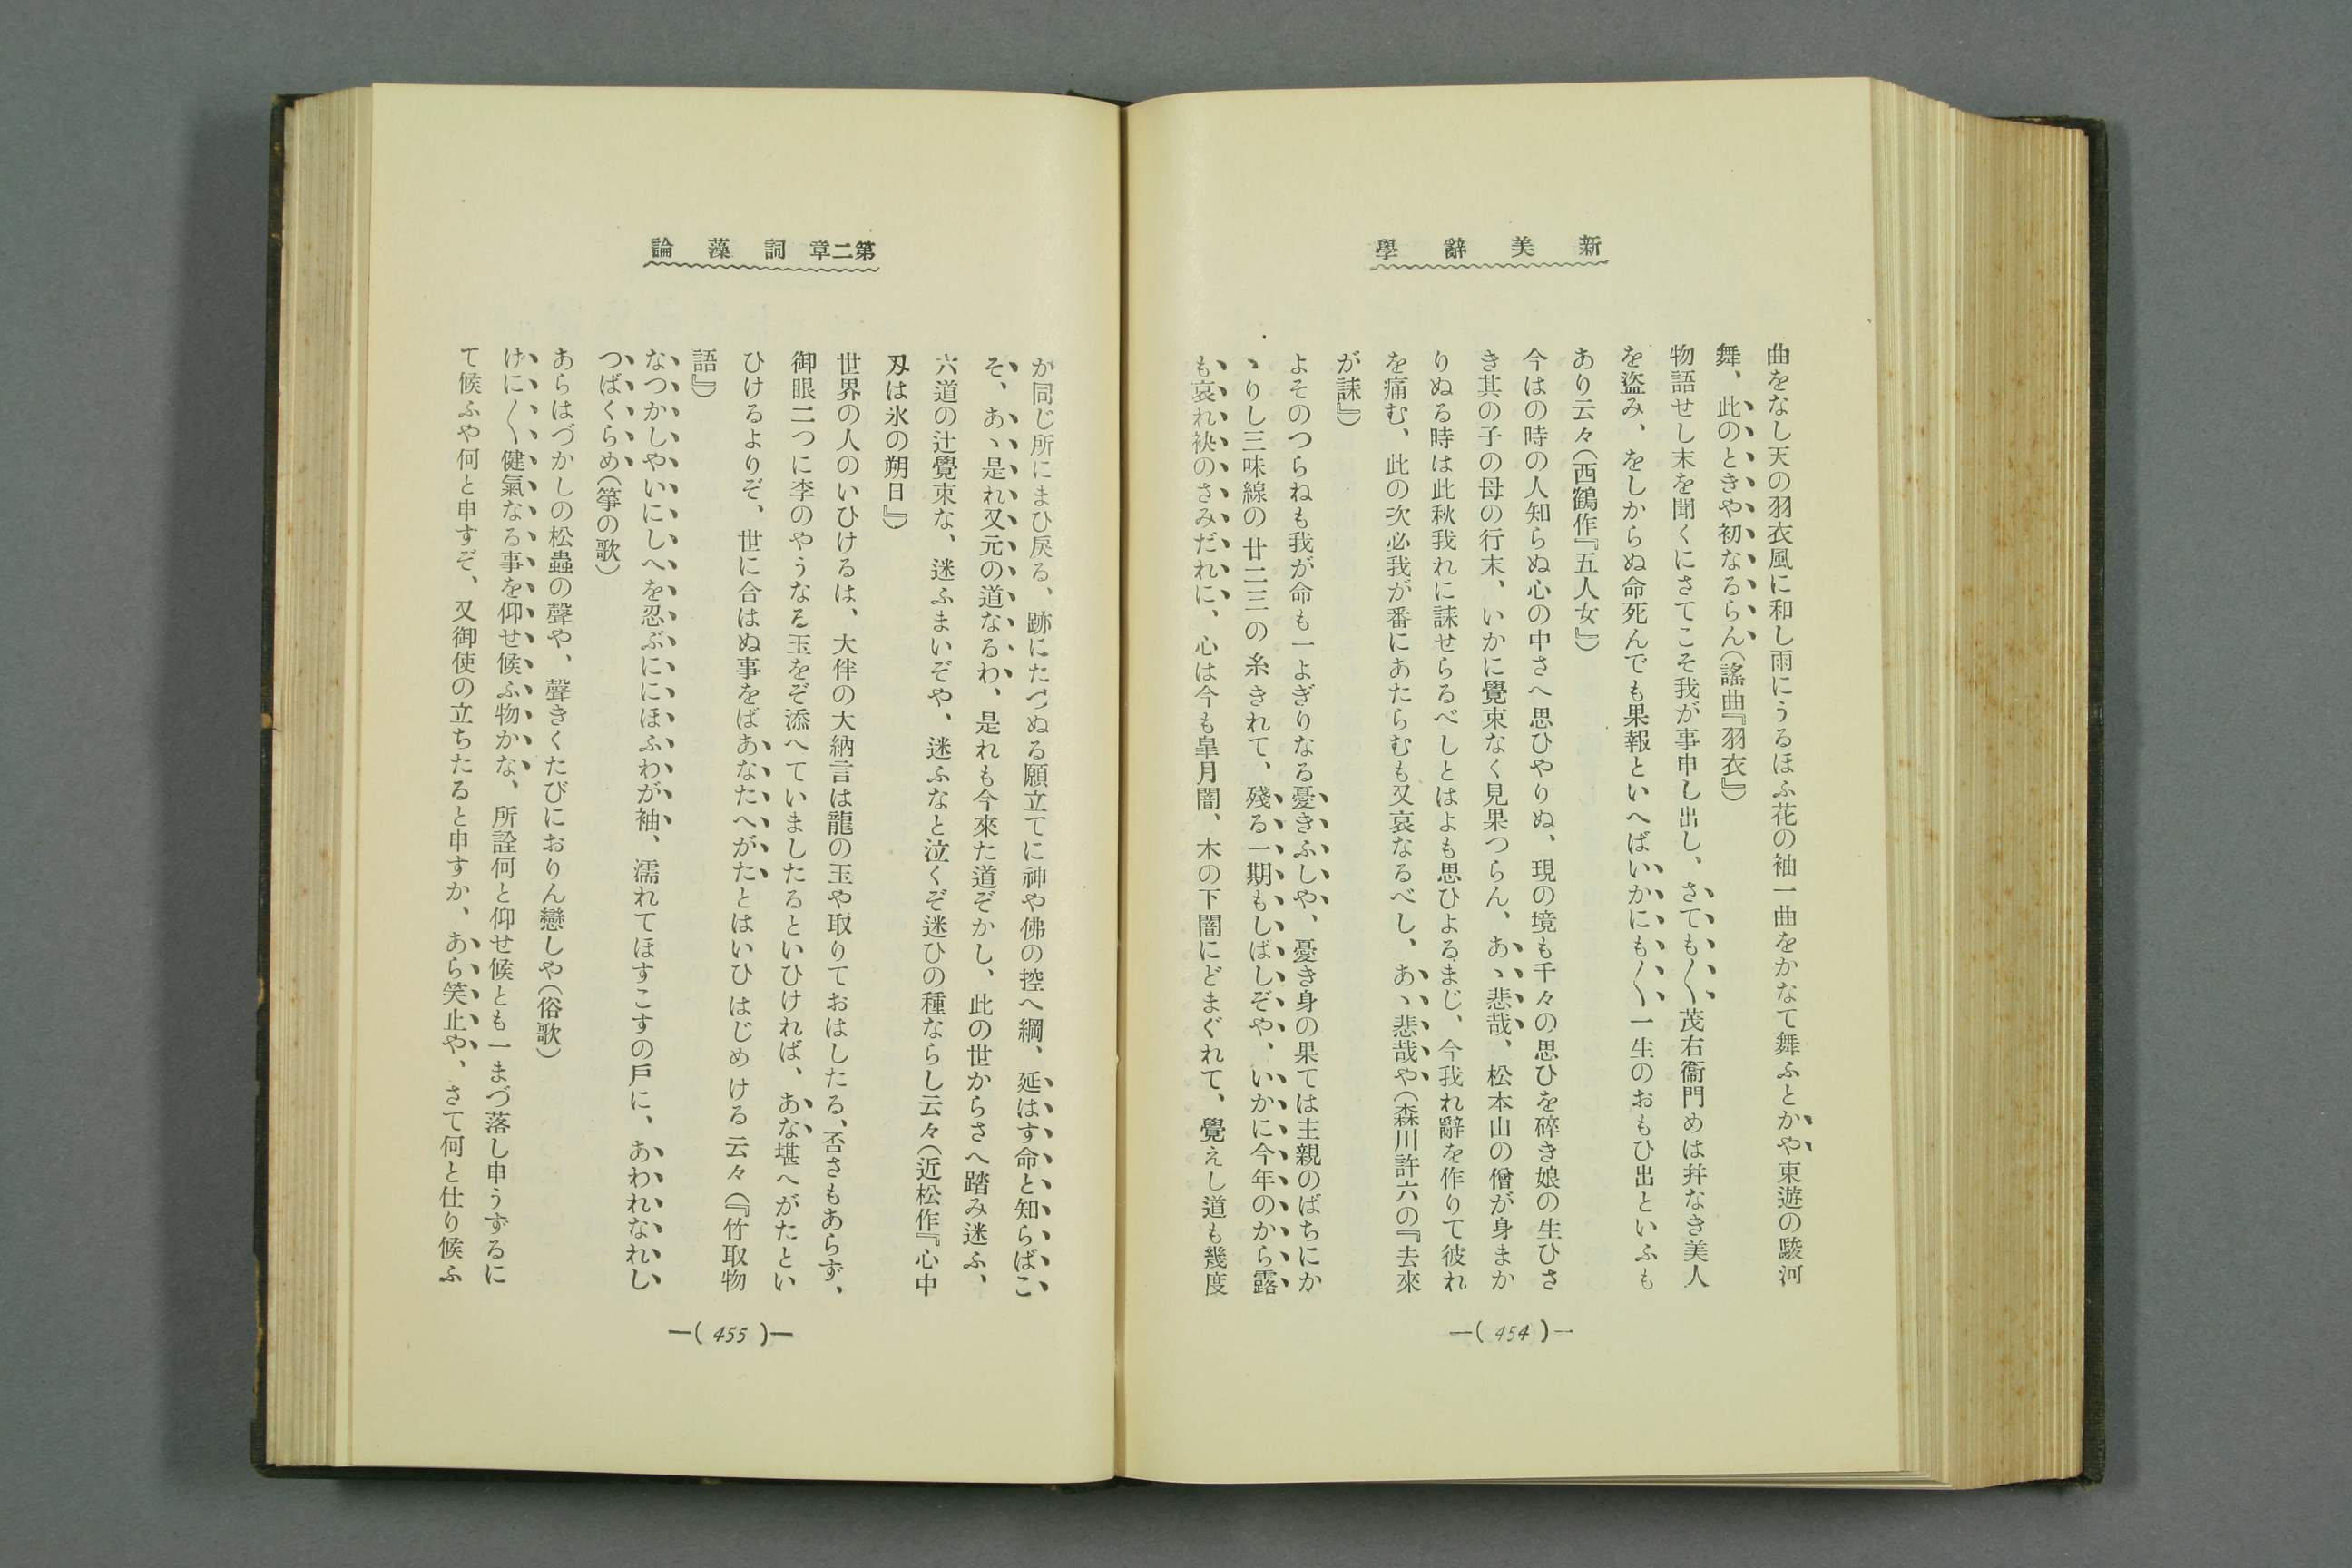 新美辭學
曲をなし天の羽衣風に和し雨にうるほふ花の袖一曲をかなて舞ふとかや東遊の駿河
舞、此のときや初なるらん（謠曲『羽衣』）
物語せし末を聞くにさてこそ我が事申し出し、さても〳〵茂右衞門めは幷なき美人
を盜み、をしからぬ命死んでも果報といへばいかにも〳〵一生のおもひ出といふも
あり云々（西鶴作『五人女』）
今はの時の人知らぬ心の中さへ思ひやりぬ、現の境も千々の思ひを碎き娘の生ひさ
き其の子の母の行末、いかに覺束なく見果つらん、あヽ悲哉、松本山の僧が身まか
りぬる時は此秋我れに誄せらるべしとはよも思ひよるまじ、今我れ辭を作りて彼れ
を痛む、此の次必我が番にあたらむも又哀なるべし、あヽ悲哉や（森川許六の『去來
が誄』）
よそのつらねも我が命も一よぎりなる憂きふしや、憂き身の果ては主親のばちにか
ヽりし三味線の廿二三の糸きれて、殘る一期もしばしぞや、いかに今年のから露
も哀れ袂のさみだれに、心は今も皐月闇、木の下闇にどまぐれて、覺えし道も幾度
―( 454 )―
第二章 詞藻論
か同じ所にまひ戾る、跡にたづぬる願立てに神や佛の控へ綱、延はす命と知らばこ
そ、あヽ是れ又元の道なるわ、是れも今來た道ぞかし、此の世からさへ踏み迷ふ、
六道の辻覺束な、迷ふまいぞや、迷ふなと泣くぞ迷ひの種ならし云々（近松作『心中
刄は氷の朔日』）
世界の人のいひけるは、大伴の大納言は龍の玉や取りておはしたる、否さもあらず、
御眼二つに李のやうなる玉をぞ添へていましたるといひければ、あな堪へがたとい
ひけるよりぞ、世に合はぬ事をばあなたへがたとはいひはじめける云々（『竹取物
語』）
なつかしやいにしへを忍ぶににほふわが袖、濡れてほすこすの戶に、あわれなれし
つばくらめ（箏の歌）
あらはづかしの松蟲の聲や、聲きくたびにおりん戀しや（俗歌）
けに〳〵健氣なる事を仰せ候ふ物かな、所詮何と仰せ候とも一まづ落し申うずるに
て候ふや何と申すぞ、又御使の立ちたると申すか、あら笑止や、さて何と仕り候ふ
―( 455 )―